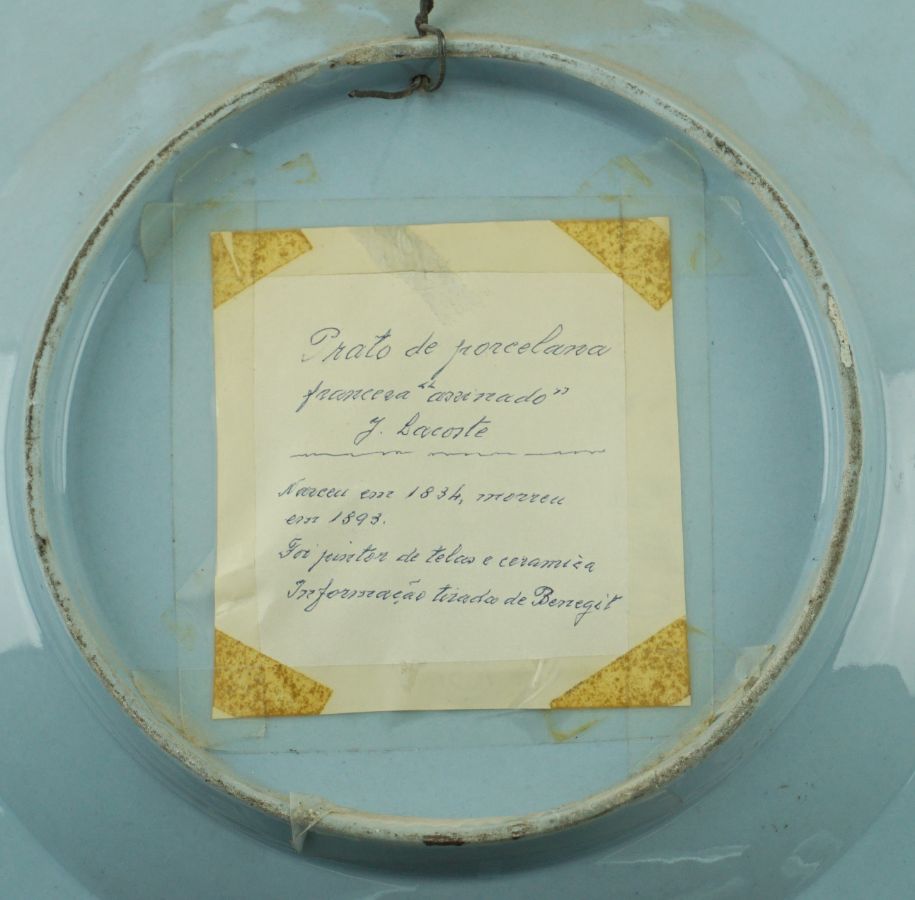 Prato de porcelana
francesa "assinado"
J. Lacoste
Nasceu em 1834, morreu
em 1893.
Foi pintor de telas e ceramica
Informação tirada de Benegit